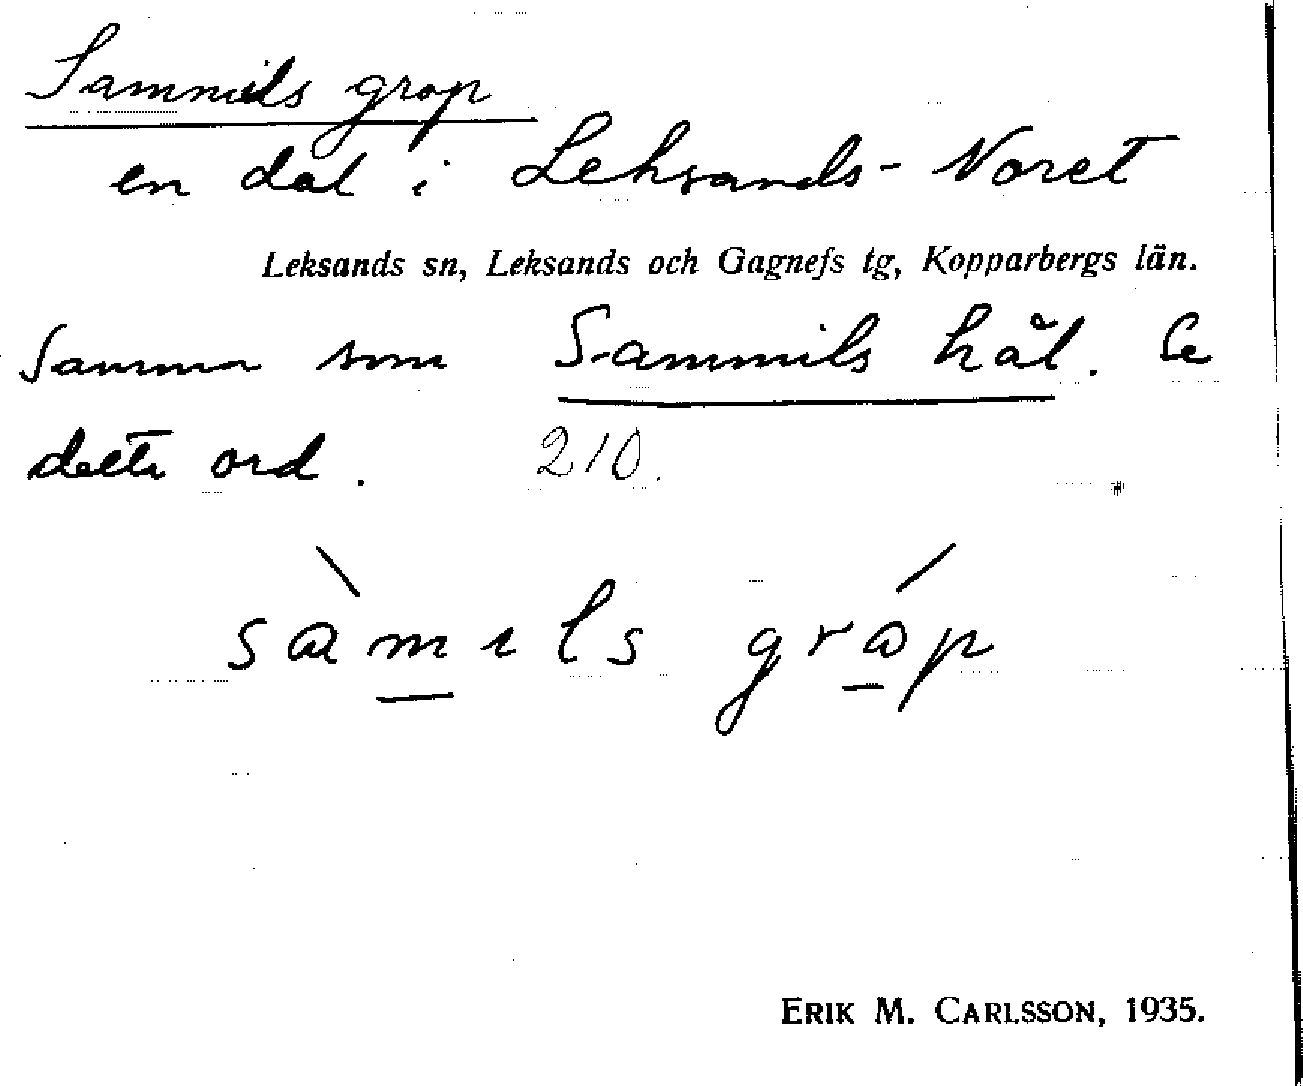 Sammils grop
en dal i Leksands-Noret
Leksands sn, Leksands och Gagnefs tg, Kopparbergs län.
Samma som Sammils hål. Se
detta ord. 210.
sàmɩls gróp
ERIK M. CARLSSON, 1935.